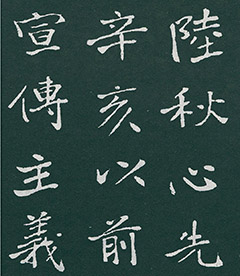 陸秋心先
辛亥以前
宣傳主義